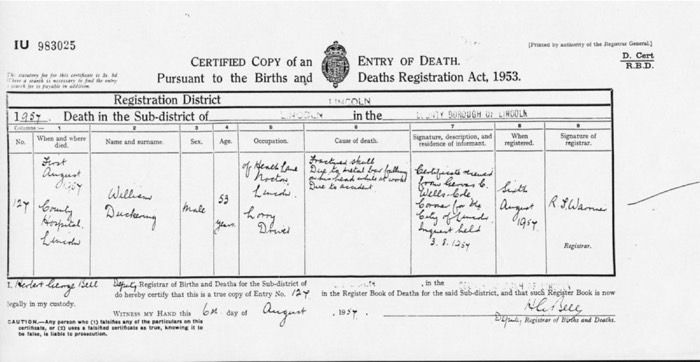 IU 983025
CERTIFIED COPY of an ENTRY OF DEATH.
Pursuant to the Births and Deaths Registration Act, 1953.
[Printed by authority of the Registrar General]
D. Cert
R.B.D.
Registration District LINCOLN
1957. Death in the Sub-district of LINCOLN in the COUNTY BOROUGH OF LINCOLN
Columns:— 1 2 3 4 5 6 7 8 9
No. When and where died. Name and surname. Sex. Age. Occupation. Cause of death. Signature, description, and residence of informant. When registered. Signature of registrar.
127
First
August
1957
County
Hospital,
Lincoln
William
Duckering
Male
53
years
of Heath Lane
Nocton
Lincoln
Lorry
Driver
Fractured skull
Due to metal bar falling
on his head while at work
Due to accident
Certificate received
from
Wells-Cole
Coroner for the
City of Lincoln
Inquest held
3. 8. 1957
Sixth
August
1957
R F Warner
Registrar.
I, Herbert George Bell Deputy Registrar of Births and Deaths for the Sub-district of , in the
do hereby certify that this is a true copy of Entry No. 127 in the Register Book of Deaths for the said Sub-district, and that such Register Book is now
legally in my custody.
WITNESS MY HAND this 6th day of August, 1957.
H G Bell
Deputy Registrar of Births and Deaths.
CAUTION.—Any person who (1) falsifies any of the particulars on this
certificate, or (2) uses a falsified certificate as true, knowing it to
be false, is liable to prosecution.